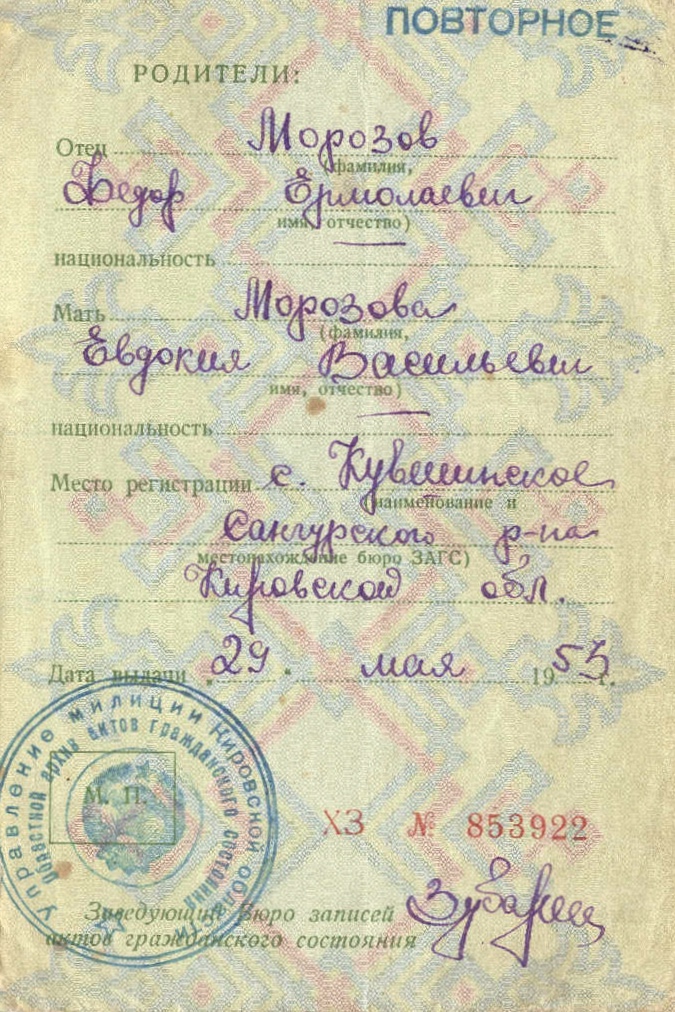 ПОВТОРНОЕ
РОДИТЕЛИ:
Отец Морозов
(фамилия,
Федор Ермолаевич
имя, отчество)
национальность —
Мать Морозова
(фамилия,
Евдокия Васильевн
имя, отчество)
национальность —
Место регистрации с. Кувшинское
(наименование и
Санчурского р-на
местонахождение бюро ЗАГС)
Кировской обл.
Дата выдачи „ 29 " мая 1953 г.
Управление милиции Кировской области
Областной архив актов гражданского состояния
М. П.
ХЗ № 853922
Заведующий бюро записей
актов гражданского состояния